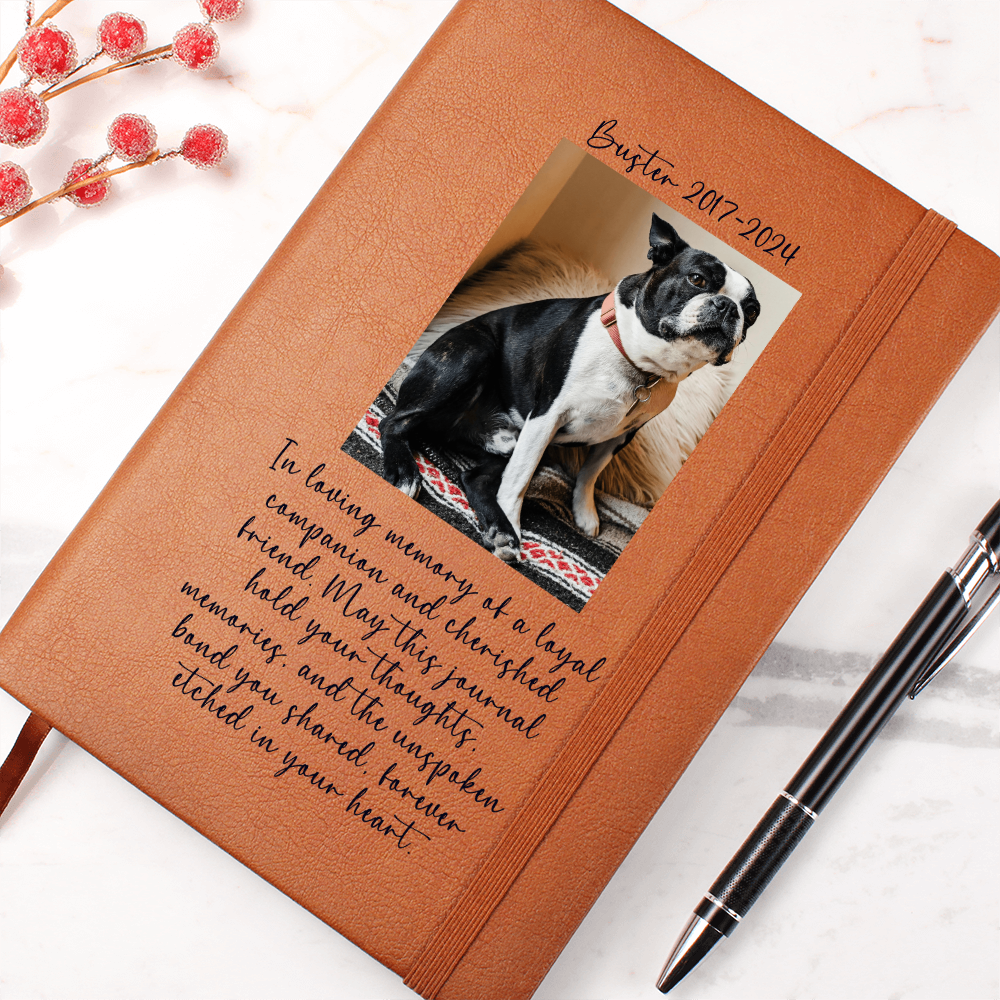 Buster 2017-2024
In loving memory of a loyal
companion and cherished
friend. May this journal
hold your thoughts,
memories, and the unspoken
bond you shared, forever
etched in your heart.